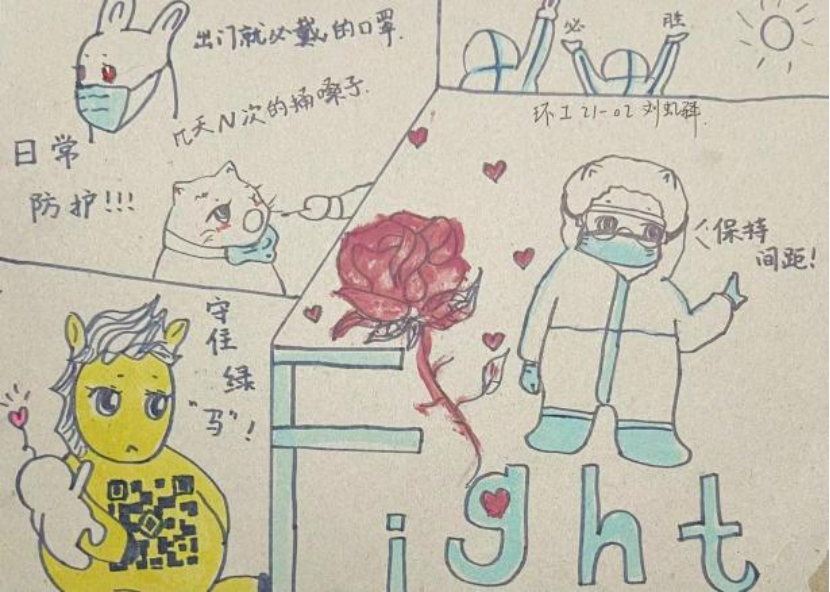 出门就必戴的口罩.
几天N次的捅嗓子.
日常
防护!!!
必 胜
环工21-02 刘虹
保持
间距!
守住绿
"马"!
Fight